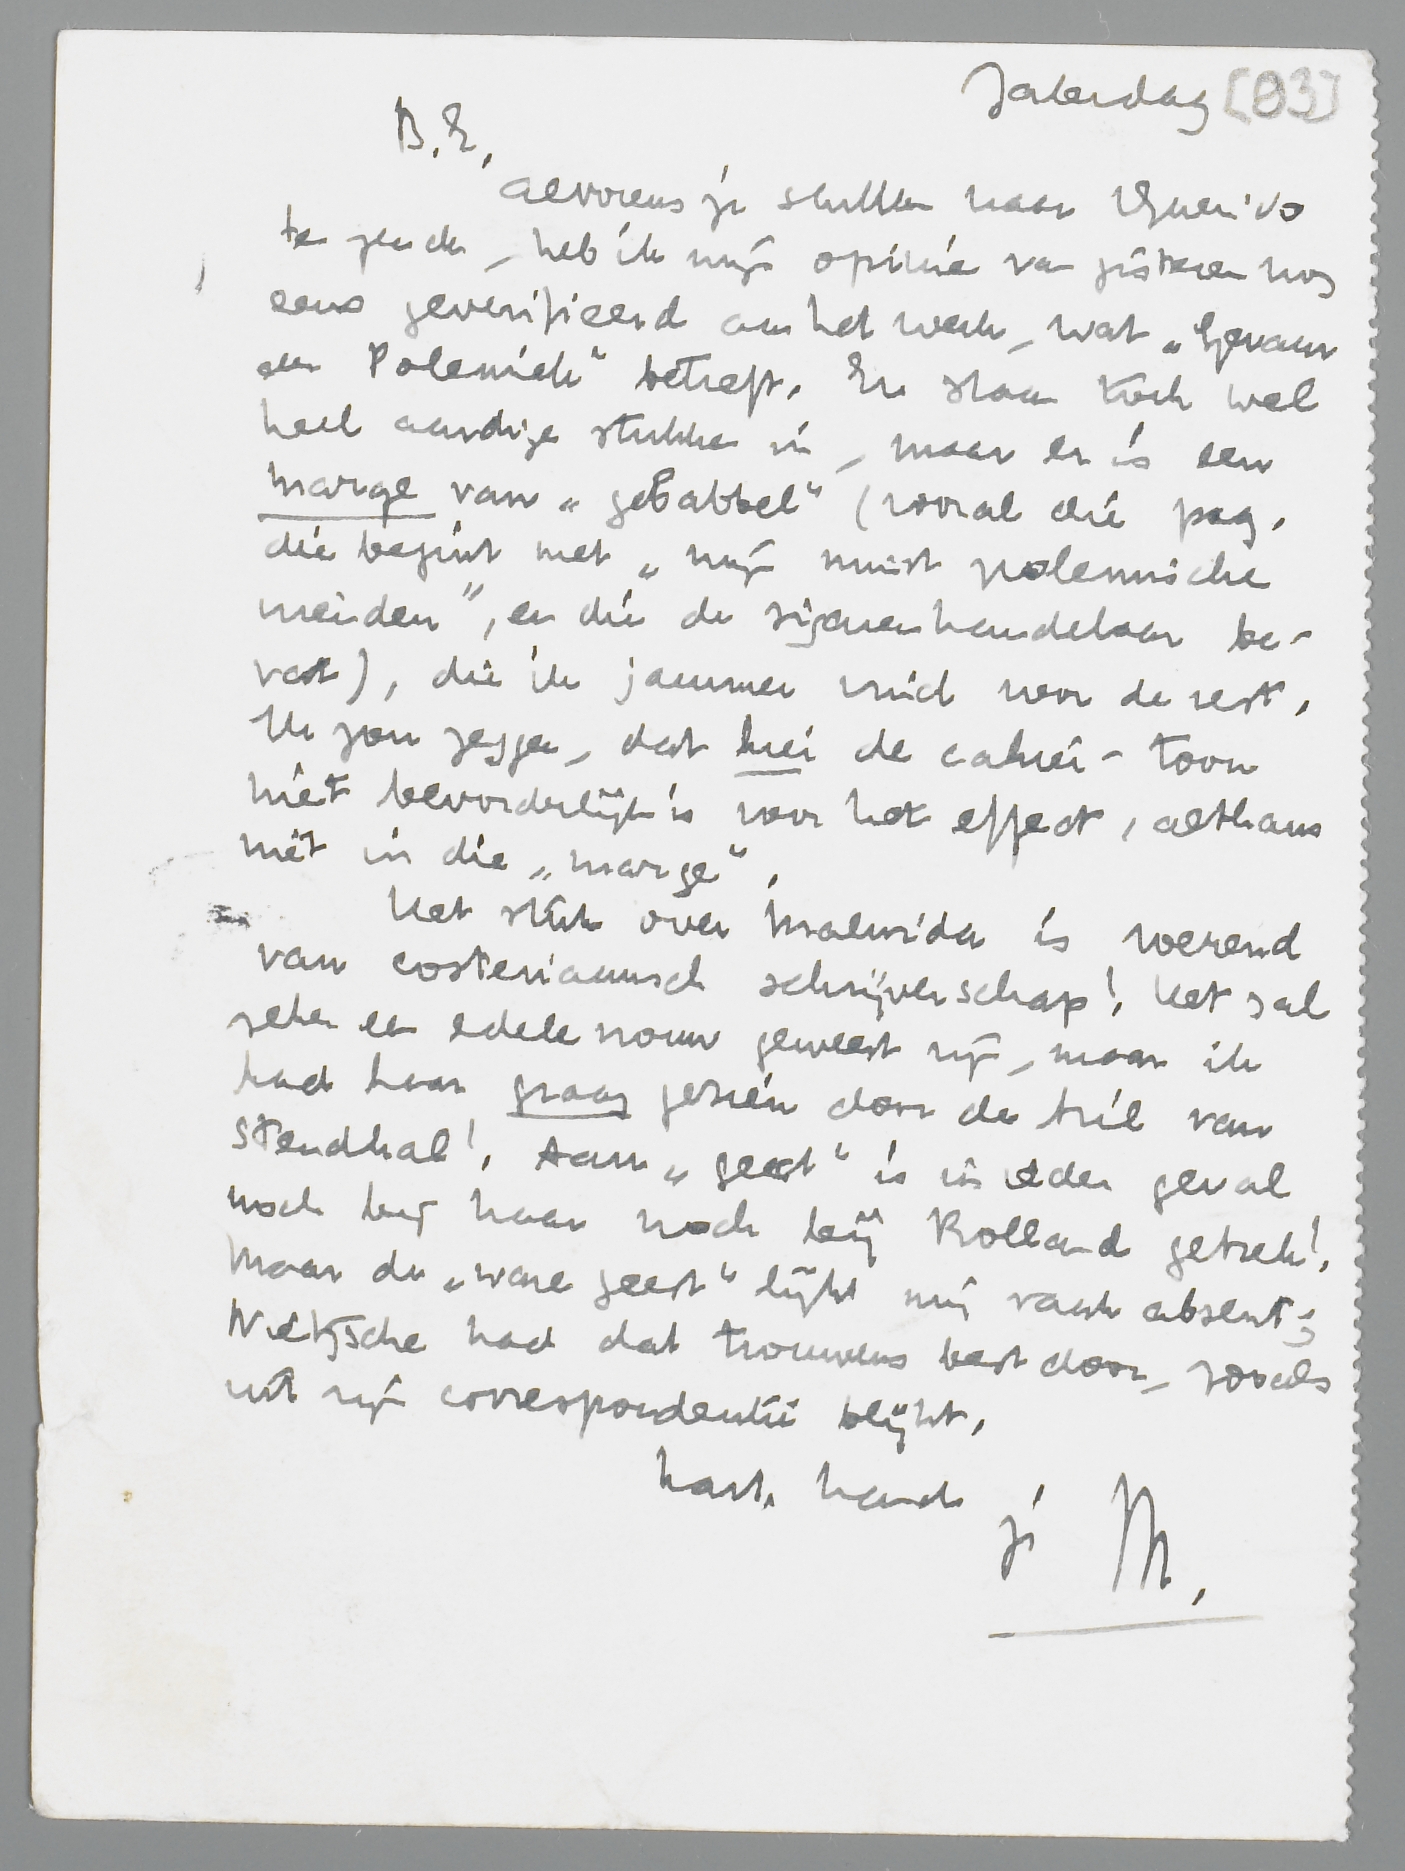 Zaterdag [83]
B.E.,
alvorens je stukken naar Querido
te zenden, heb ik mijn opinie van gisteren nog
eens geverifieerd aan het werk, wat „Gevaar
en Polemiek" betreft. Er staan toch wel
heel aardige stukken in, maar er is een
marge van „gebabbel" (vooral die pag.
die begint met „mijn minst polemische
meiden", en die de sigarenhandelaar be-
vat), die ik jammer vind voor de rest.
Ik zou zeggen, dat hier de cahier-toon
niet bevorderlijk is voor het effect, althans
niet in die „marge".
Het stuk over Malwida is roerend
van costeriaansch schrijverschap! Het zal
zeker een edele vrouw geweest zijn, maar ik
had haar graag gezien door de bril van
Stendhal! Aan „geest" is in ieder geval
noch bij haar noch bij Rolland gebrek!
Maar de „ware geest" lijkt mij vaak absent;
Nietzsche had dat trouwens best door, zooals
uit zijn correspondentie blijkt.
hart. hand
je M.